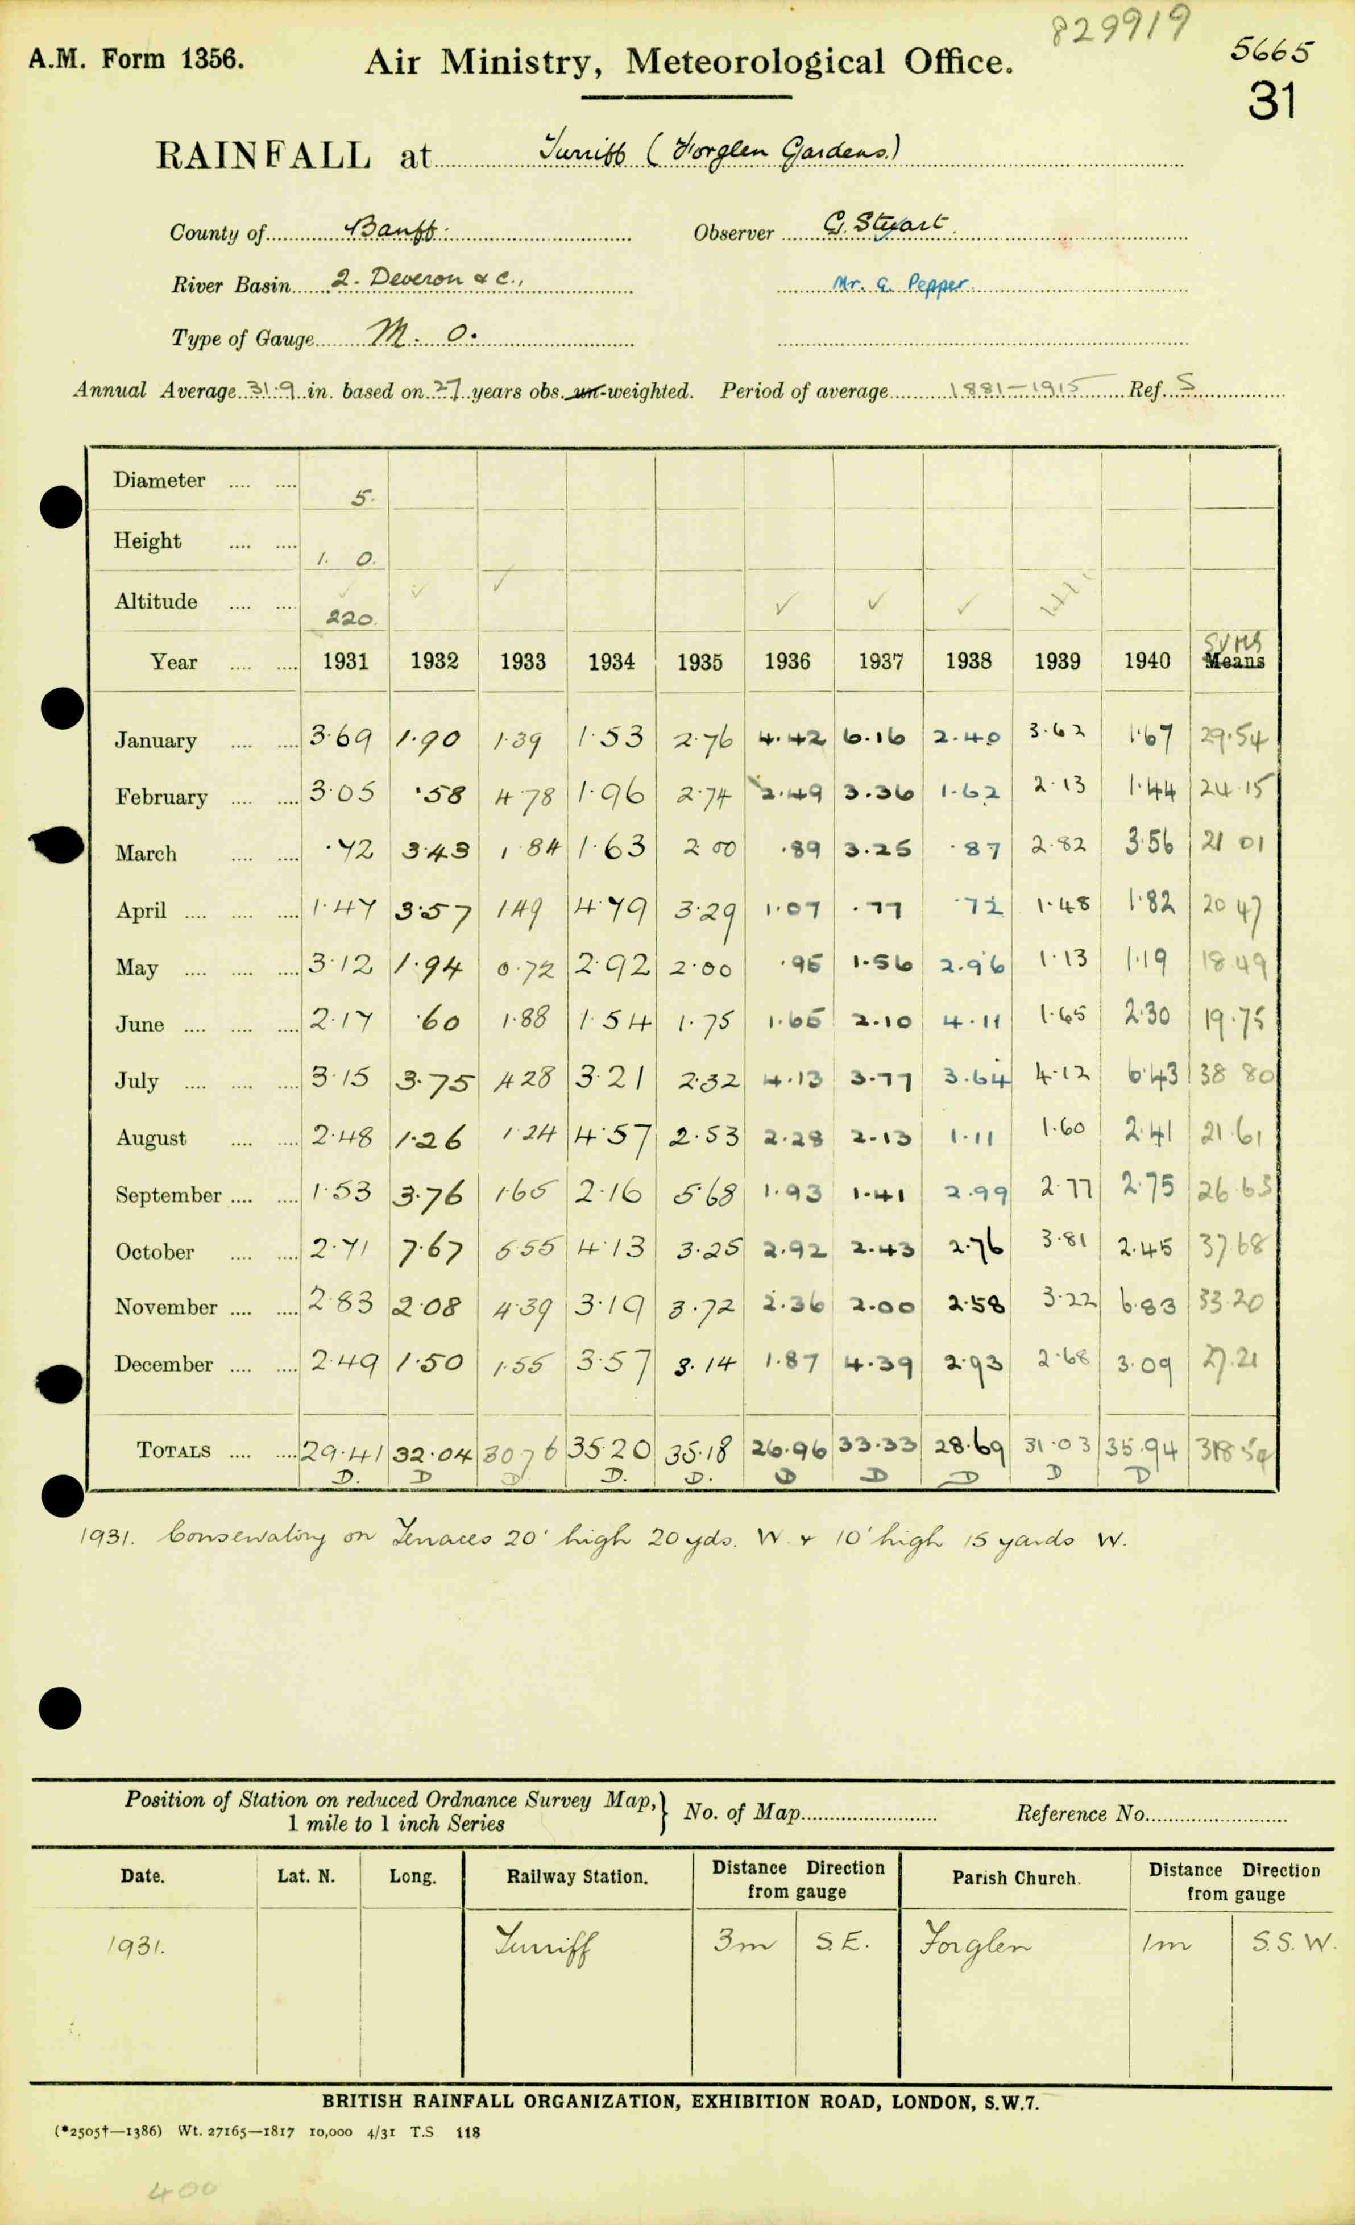 829919
5665
A.M. Form 1356.
Air Ministry, Meteorological Office.
31
RAINFALL at Turriff (Forglen Gardens.)
County of Banff. Observer G. Stewart.
River Basin 2. Deveron & c., Mr. G. Pepper
Type of Gauge M. O.
Annual Average 31.9 in. based on 27 years obs. un-weighted. Period of average 1881-1915 Ref. S
Diameter .... .... 5.
Height .... .... 1. 0.
Altitude .... .... 220.
Sums
Year .... .... 1931 1932 1933 1934 1935 1936 1937 1938 1939 1940 Means
January .... .... 3.69 1.90 1.39 1.53 2.76 4.42 6.16 2.40 3.62 1.67 29.54
February .... .... 3.05 .58 4 78 1.96 2.74 2.49 3.36 1.62 2.13 1.44 24.15
March .... .... .72 3.43 1.84 1.63 2 00 .89 3.25 .87 2.82 3.56 21 01
April .... .... .... 1.47 3.57 1 49 4.79 3.29 1.07 .77 .72 1.48 1.82 20 47
May .... .... .... 3.12 1.94 0.72 2.92 2.00 .95 1.56 2.96 1.13 1.19 18.49
June .... .... .... 2.17 .60 1.88 1.54 1.75 1.65 2.10 4.11 1.65 2.30 19.75
July .... .... .... 3.15 3.75 4 28 3.21 2.32 4.13 3.77 3.64 4.12 6.43 38 80
August .... .... 2.48 1.26 1.24 4.57 2.53 2.28 2.13 1.11 1.60 2.41 21.61
September .... .... 1.53 3.76 1 65 2.16 5.68 1.93 1.41 2.99 2.77 2.75 26 63
October .... .... 2.71 7.67 5.55 4.13 3.25 2.92 2.43 2.76 3.81 2.45 37 68
November .... .... 2.83 2.08 4.39 3.19 3.72 2.36 2.00 2.58 3.22 6.83 33.20
December .... .... 2.49 1.50 1.55 3.57 3.14 1.87 4.39 2.93 2.68 3.09 27.21
TOTALS .... .... 29.41 32.04 30 76 35 20 35.18 26.96 33.33 28.69 31.03 35.94 318 54
D. D D D. D. D D D D D
1931. Conservatory on Terraces 20' high 20 yds. W. & 10' high 15 yards W.
Position of Station on reduced Ordnance Survey Map,
1 mile to 1 inch Series
No. of Map Reference No.
Date. Lat. N. Long. Railway Station. Distance Direction from gauge Parish Church. Distance Direction from gauge
1931. Turriff 3m S.E. Forglen 1m S.S.W.
BRITISH RAINFALL ORGANIZATION, EXHIBITION ROAD, LONDON, S.W.7.
(*2505†—1386) Wt. 27165—1817 10,000 4/31 T.S 118
400